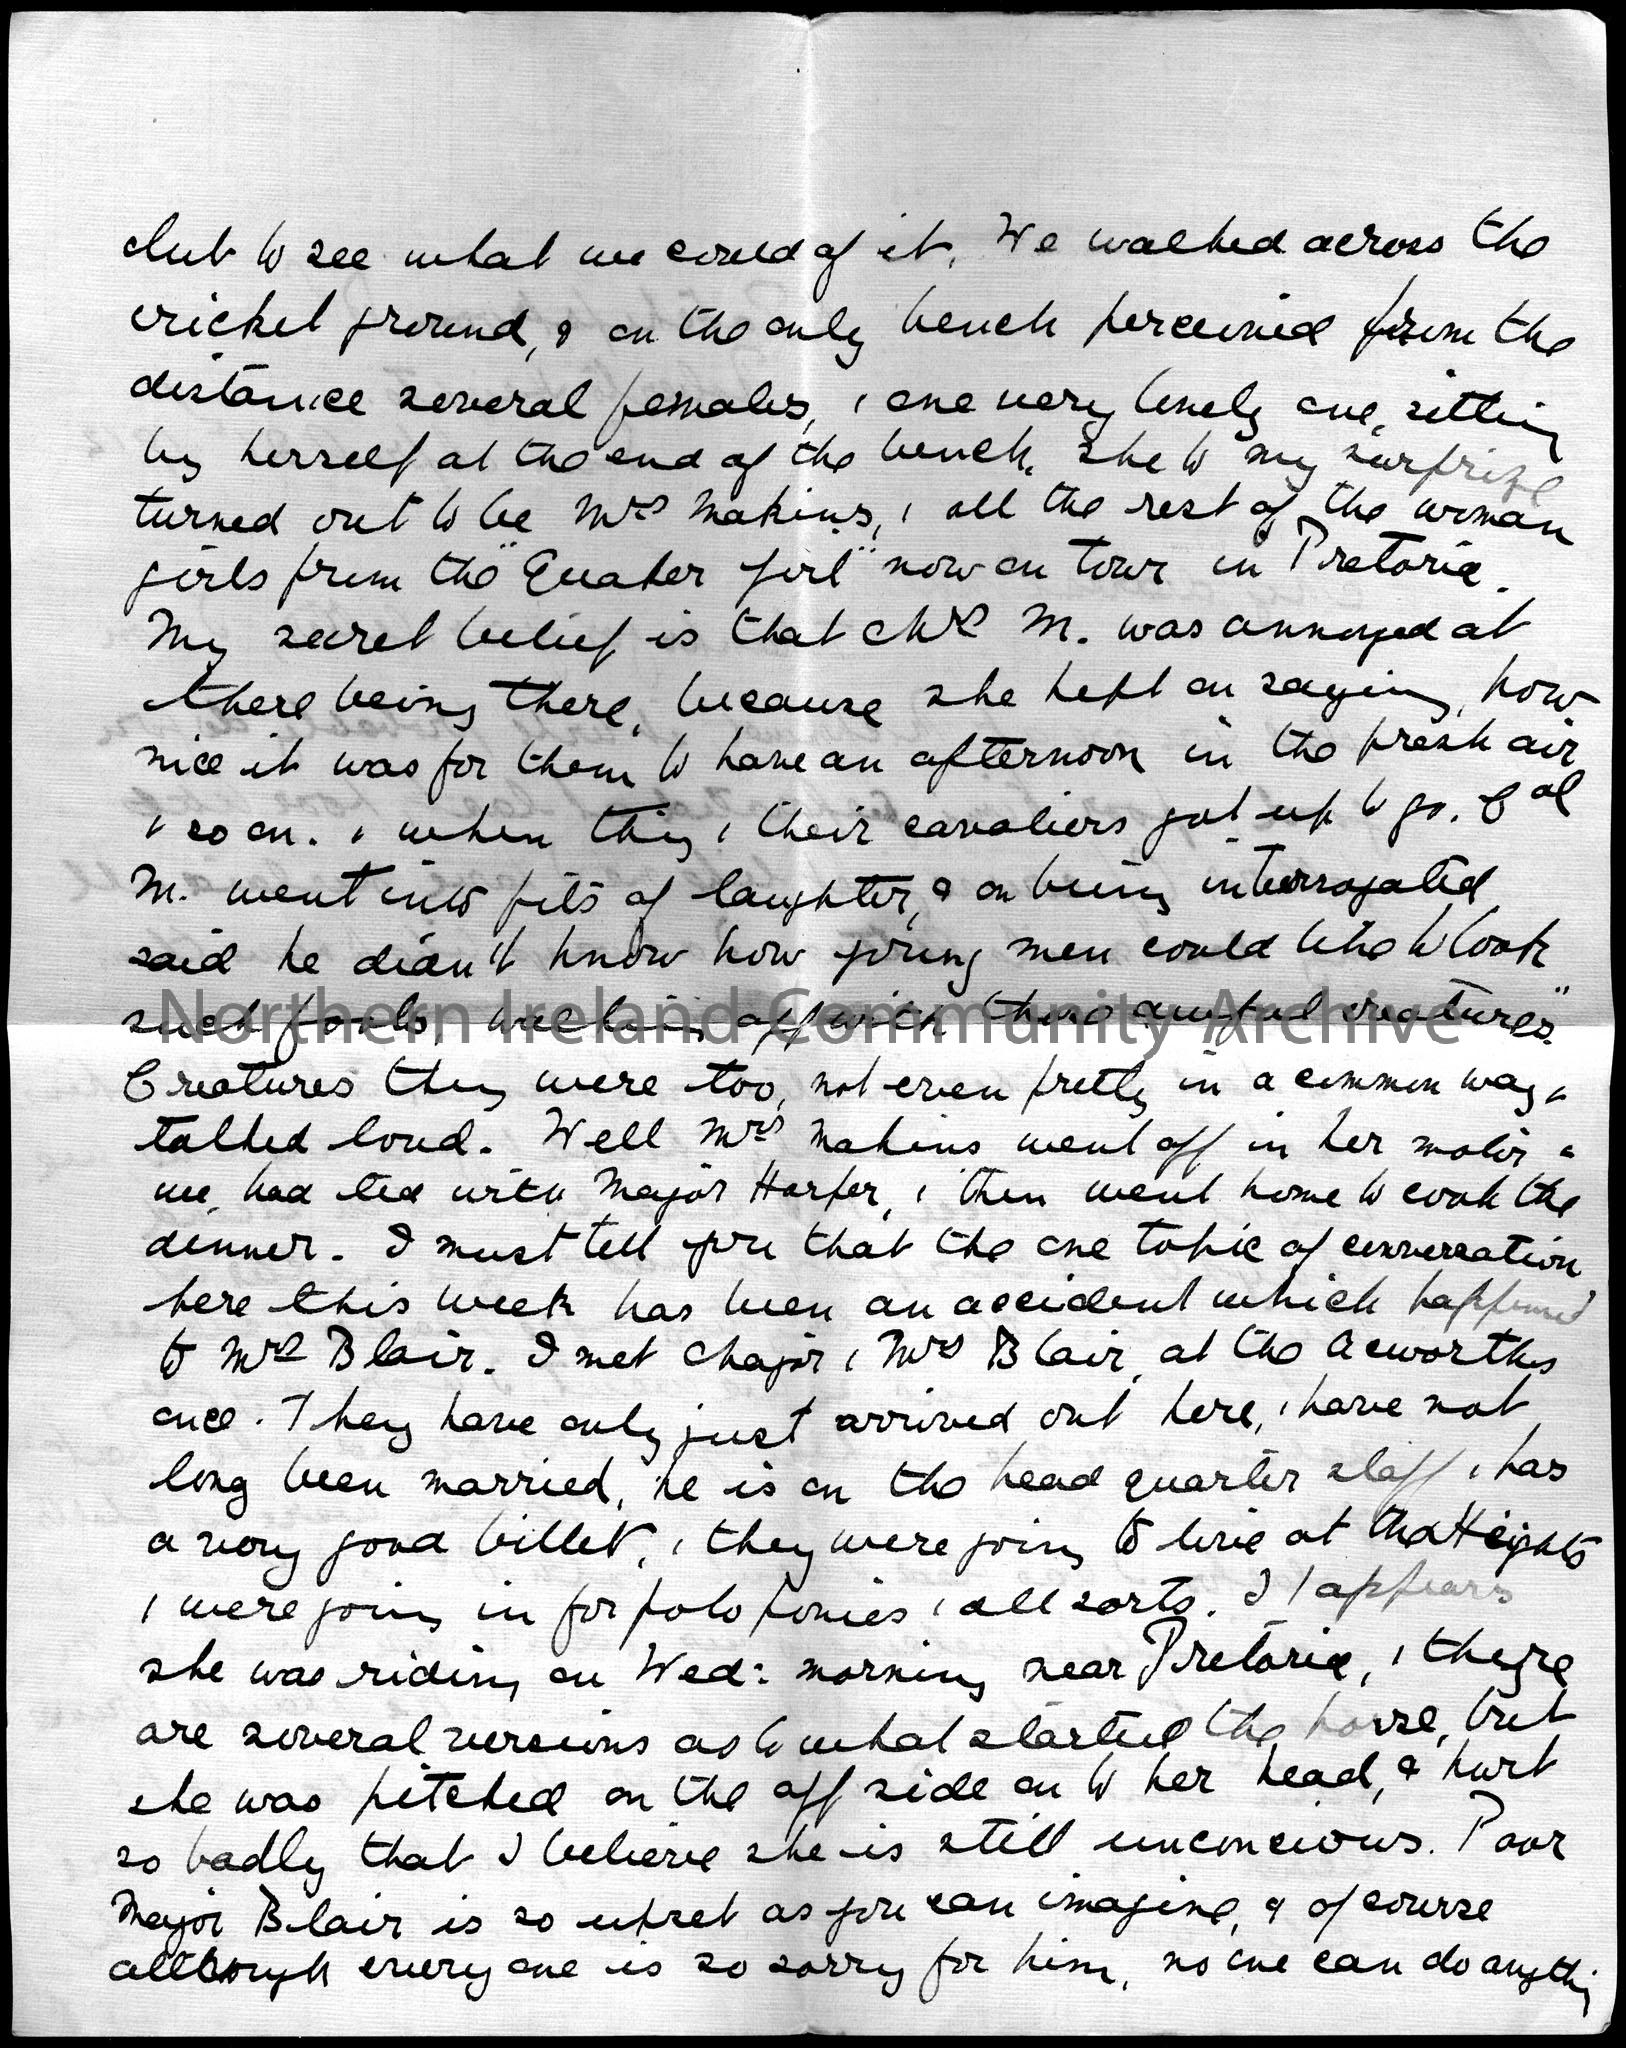 club to see what we could of it. We walked across the
cricket ground, & on the only bench perceived from the
distance several females, & one very lonely one, sitting
by herself at the end of the bench. She to my surprize
turned out to be Mrs Makins, & all the rest of the woman
girls from the "Quaker Girl" now on tour in Pretoria.
My secret belief is that Mrs M. was annoyed at
there being there, because she kept on saying, how
nice it was for them to have an afternoon in the fresh air
& so on. & when they & their cavaliers got up to go. Col
M. went into fits of laughter, & on being interrogated
said he didn't know how young men could like to look
such fools, walking off with those awful creatures."
Creatures they were too, not even pretty in a common way, &
talked loud. Well Mrs Makins went off in her motor &
we had tea with Major Harper, & then went home to cook the
dinner. I must tell you that the one topic of conversation
here this week has been an accident which happened
to Mrs Blair. I met Major & Mrs Blair, at the Acworths
once. They have only just arrived out here, & have not
long been married, he is on the head quarter staff & has
a very good billet, & they were going to live at the Heights
& were going in for polo ponies & all sorts. It appears
she was riding on Wed: morning near Pretoria, & there
are several versions as to what started the horse, but
she was pitched on the off side on to her head, & hurt
so badly that I believe she is still unconcious. Poor
Major Blair is so upset as you can imagine, & of course
although every one is so sorry for him, no one can do anything
Northern Ireland Community Archive